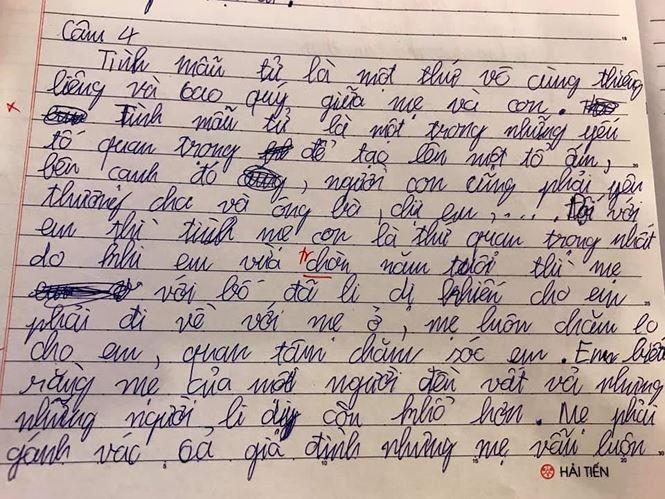 Câu 4
Tình mẫu tử là một thứ vô cùng thiêng
liêng và cao quý, giữa mẹ và con.
Tình mẫu tử là một trong những yếu
tố quan trọng để tạo lên một tổ ấm,
bên cạnh đó, người con cũng phải yêu
thương cha và ông bà, chị em, .... Đối với
em thì tình mẹ con là thứ quan trọng nhất
do khi em vừa tr chòn năm tuổi thì mẹ
với bố đã li dị khiến cho em
phải đi về với mẹ ở, mẹ luôn chăm lo
cho em, quan tâm chăm sóc em. Em biết
rằng mẹ của mỗi người đều vất vả nhưng
những người li dị còn khổ hơn. Mẹ phải
gánh vác cả gia đình nhưng mẹ vẫn luôn
HẢI TIẾN